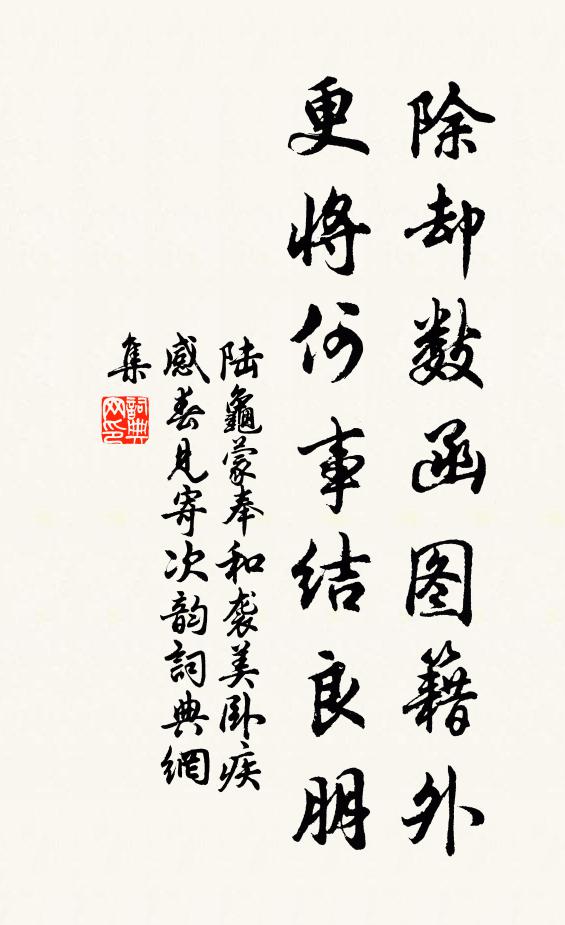 除却数函图籍外
更将何事结良朋
陆龜蒙奉和袭美卧疾
感春见寄次韵詞典網
集
詞典
网印